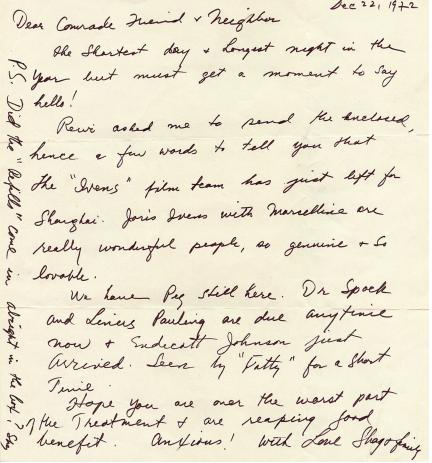 Dec 22, 1972
Dear Comrade Friend & Neighbor
The Shortest day & Longest night in the
Year but must get a moment to say
hello!
Rewi asked me to send the enclosed,
hence a few words to tell you that
the "Ivens" film team has just left for
Shanghai. Joris Ivens with Marcelline are
really wonderful people, so genuine & so
lovable.
We have Peg still here. Dr Spock
and Linus Pauling are due anytime
now & Endicott Johnson just
arrived. Seen by "Fatty" for a short
Time.
Hope you are over the worst part
of the Treatment & are reaping good
benefit. Anxious! With Love Shag
P.S. Did the "Refills" come in alright in the box? Shag